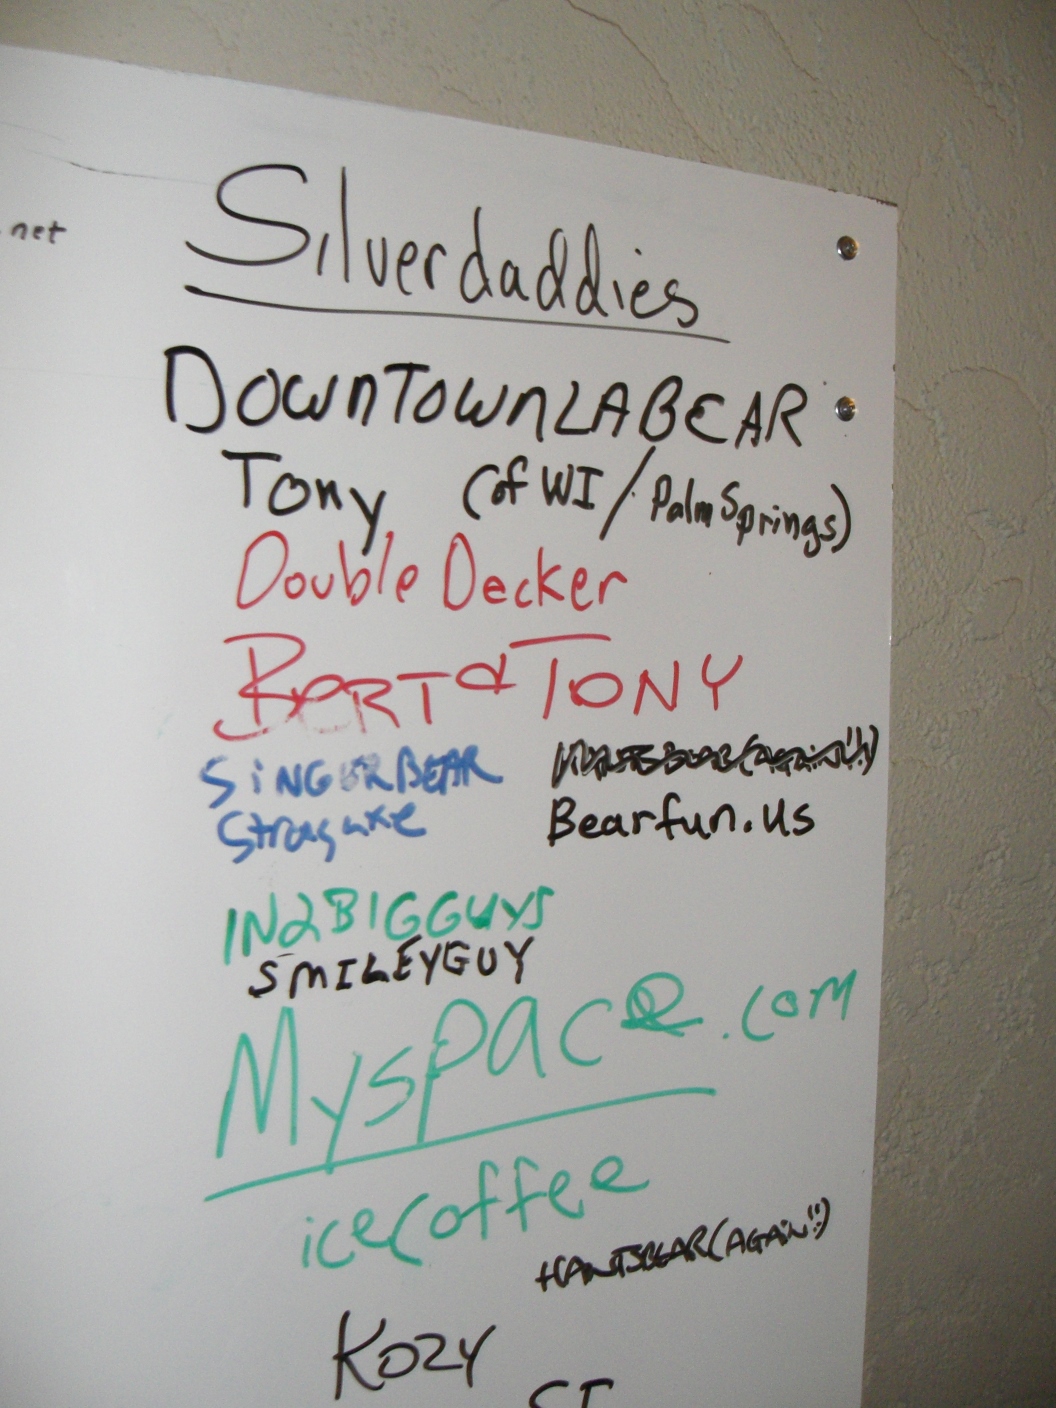 .net
Silverdaddies
DOWNTOWNLABEAR
Tony (of WI / Palm Springs)
Double Decker
BERT & TONY
SINGERBEAR
Bearfun.us
IN2BIGGUYS
SMILEYGUY
Myspace.com
icecoffee
HANTSBEAR (AGAIN!!)
KOZY